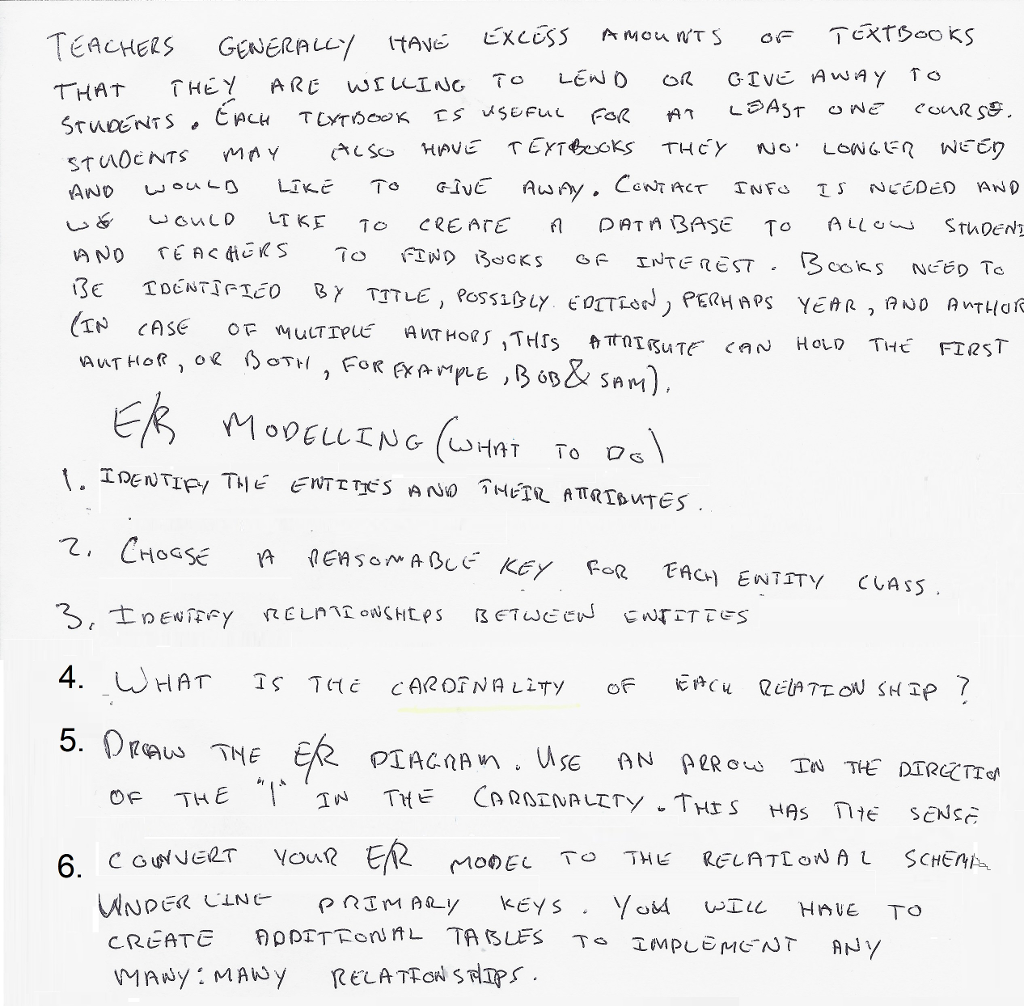 TEACHERS GENERALLY HAVE EXCESS AMOUNTS OF TEXTBOOKS
THAT THEY ARE WILLING TO LEND OR GIVE AWAY TO
STUDENTS. EACH TEXTBOOK IS USEFUL FOR AT LEAST ONE COURSE.
STUDENTS MAY ALSO HAVE TEXTBOOKS THEY NO LONGER NEED
AND WOULD LIKE TO GIVE AWAY. CONTACT INFO IS NEEDED AND
WE WOULD LIKE TO CREATE A DATABASE TO ALLOW STUDENT
AND TEACHERS TO FIND BOOKS OF INTEREST. BOOKS NEED TO
BE IDENTIFIED BY TITLE, POSSIBLY EDITION, PERHAPS YEAR, AND AUTHOR
(IN CASE OF MULTIPLE AUTHORS, THIS ATTRIBUTE CAN HOLD THE FIRST
AUTHOR, OR BOTH, FOR EXAMPLE, BOB & SAM).
E/R MODELLING (WHAT TO DO)
1. IDENTIFY THE ENTITIES AND THEIR ATTRIBUTES.
2. CHOOSE A REASONABLE KEY FOR EACH ENTITY CLASS.
3. IDENTIFY RELATIONSHIPS BETWEEN ENTITIES
4. WHAT IS THE CARDINALITY OF EACH RELATIONSHIP?
5. DRAW THE E/R DIAGRAM. USE AN ARROW IN THE DIRECTION
OF THE "1" IN THE CARDINALITY. THIS HAS THE SENSE
6. CONVERT YOUR E/R MODEL TO THE RELATIONAL SCHEMA
UNDERLINE PRIMARY KEYS. YOU WILL HAVE TO
CREATE ADDITIONAL TABLES TO IMPLEMENT ANY
MANY:MANY RELATIONSHIPS.